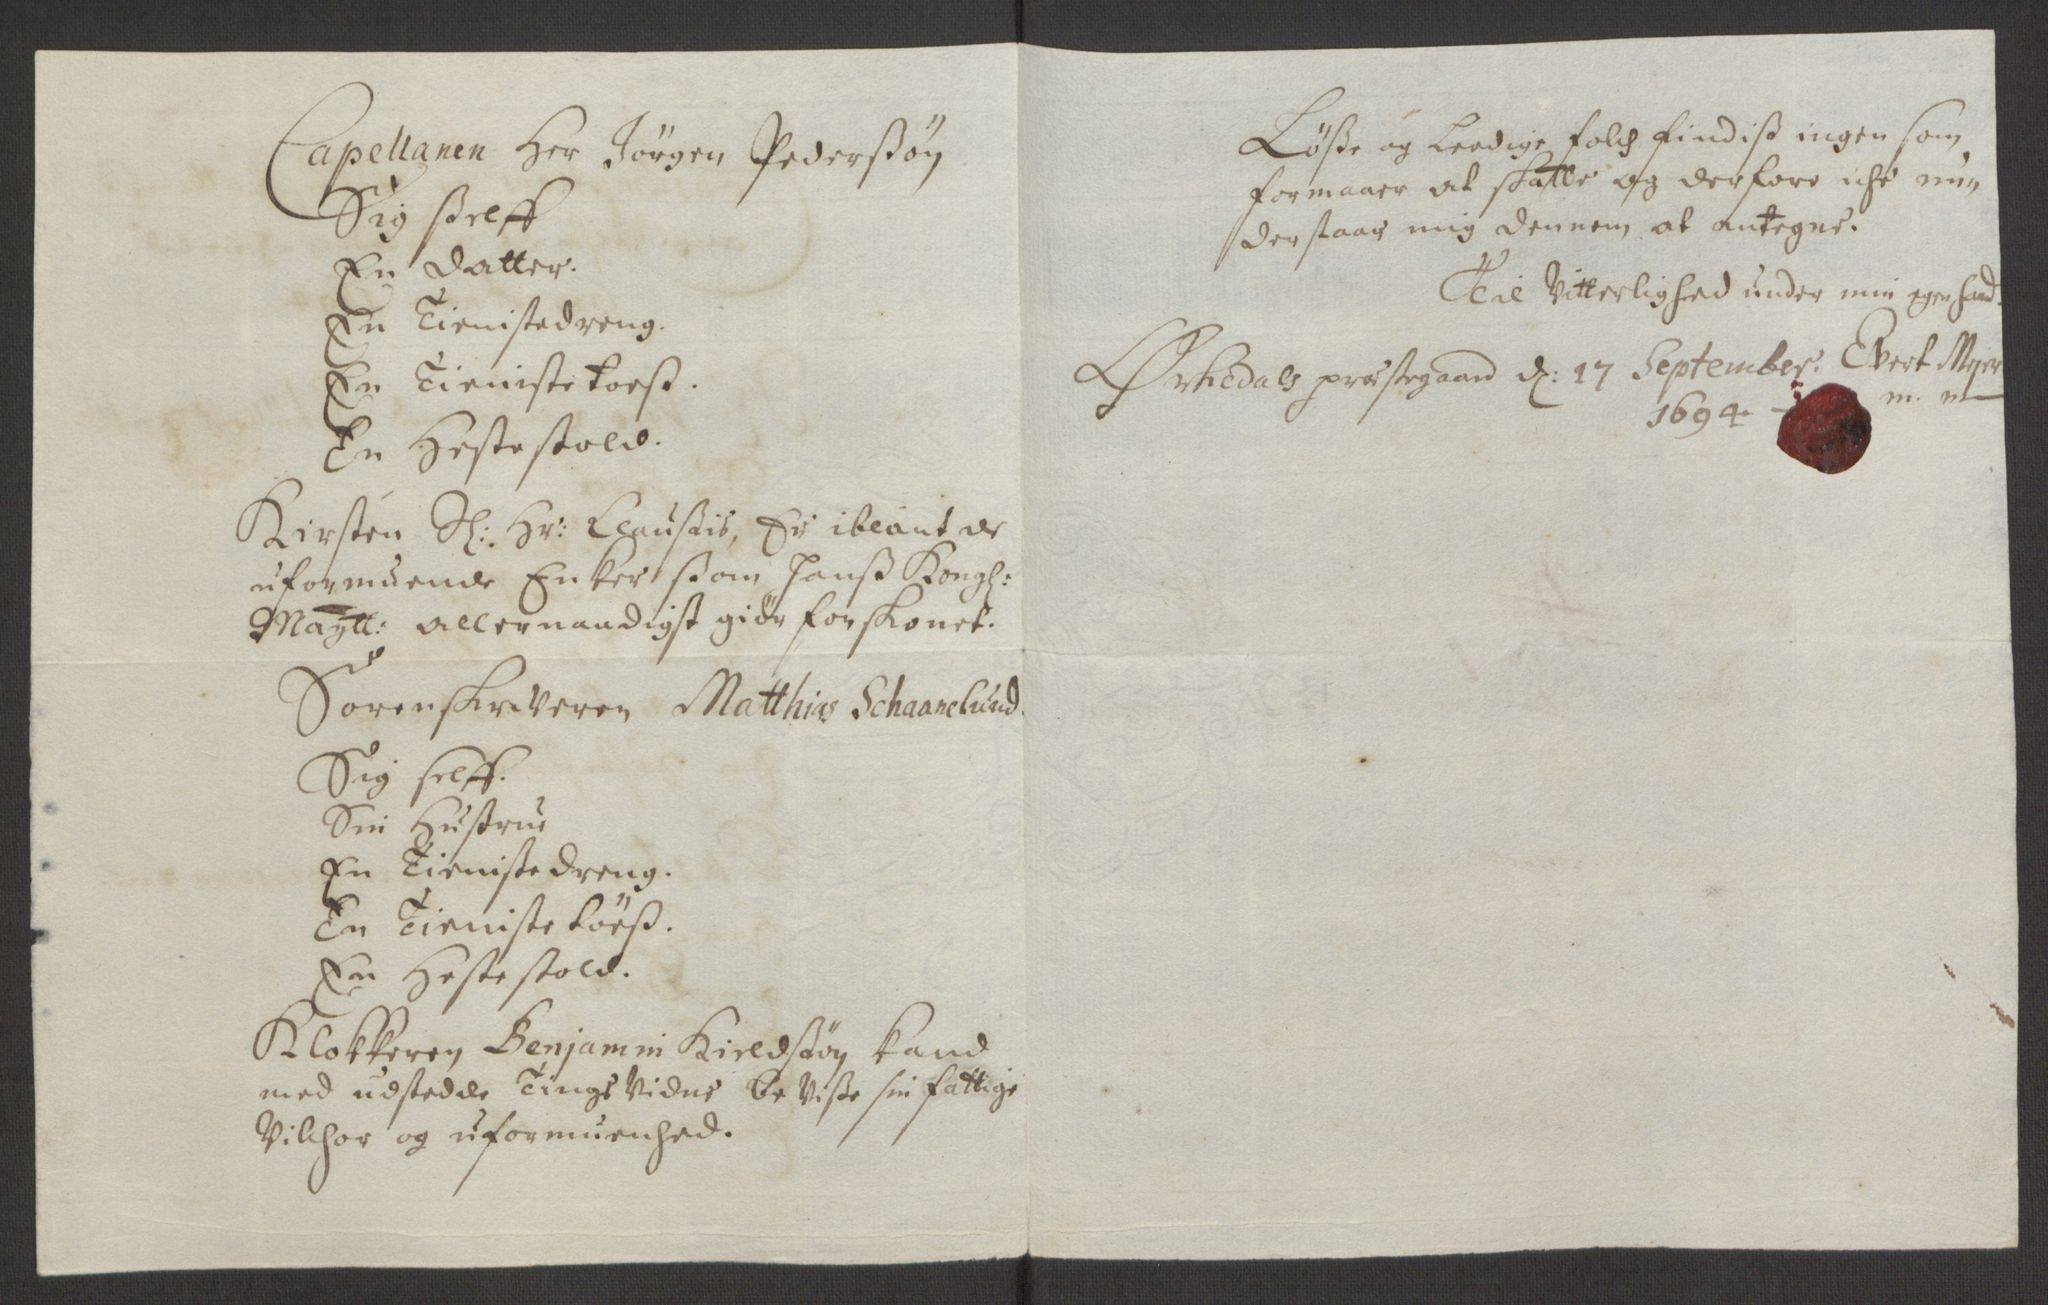 Capellanen Her Jörgen Pederßön
Sig ßelff
En datter.
En Tienistedreng.
En Tieniste toeß.
En Hestestold.
Kirsten Sl: Hr: Claußis, Er iblant de
uformuende Enker ßom Hanß Kongl:
Maytt: allernaadigst giör forskonet.
Sorenskriveren Matthias Schaanelund.
Sig selff.
Sin Hustrue
En Tienistedreng.
En Tieniste töeß.
En Hestestold.
Klokkeren Benjamin Kieldßön kand
med udstedde Tings Vidne be Viße sin fattige
Vilchor og uformuenhed.
Löße og Leedige folch findiß ingen som
formaaer at skatte og derfore iche un,
derstaar mig dennem at antegne.
Til Vitterlighed under min egen hand.
Ørkedals præstegaard d: 17 September. Evert Mejer
1694 m. m